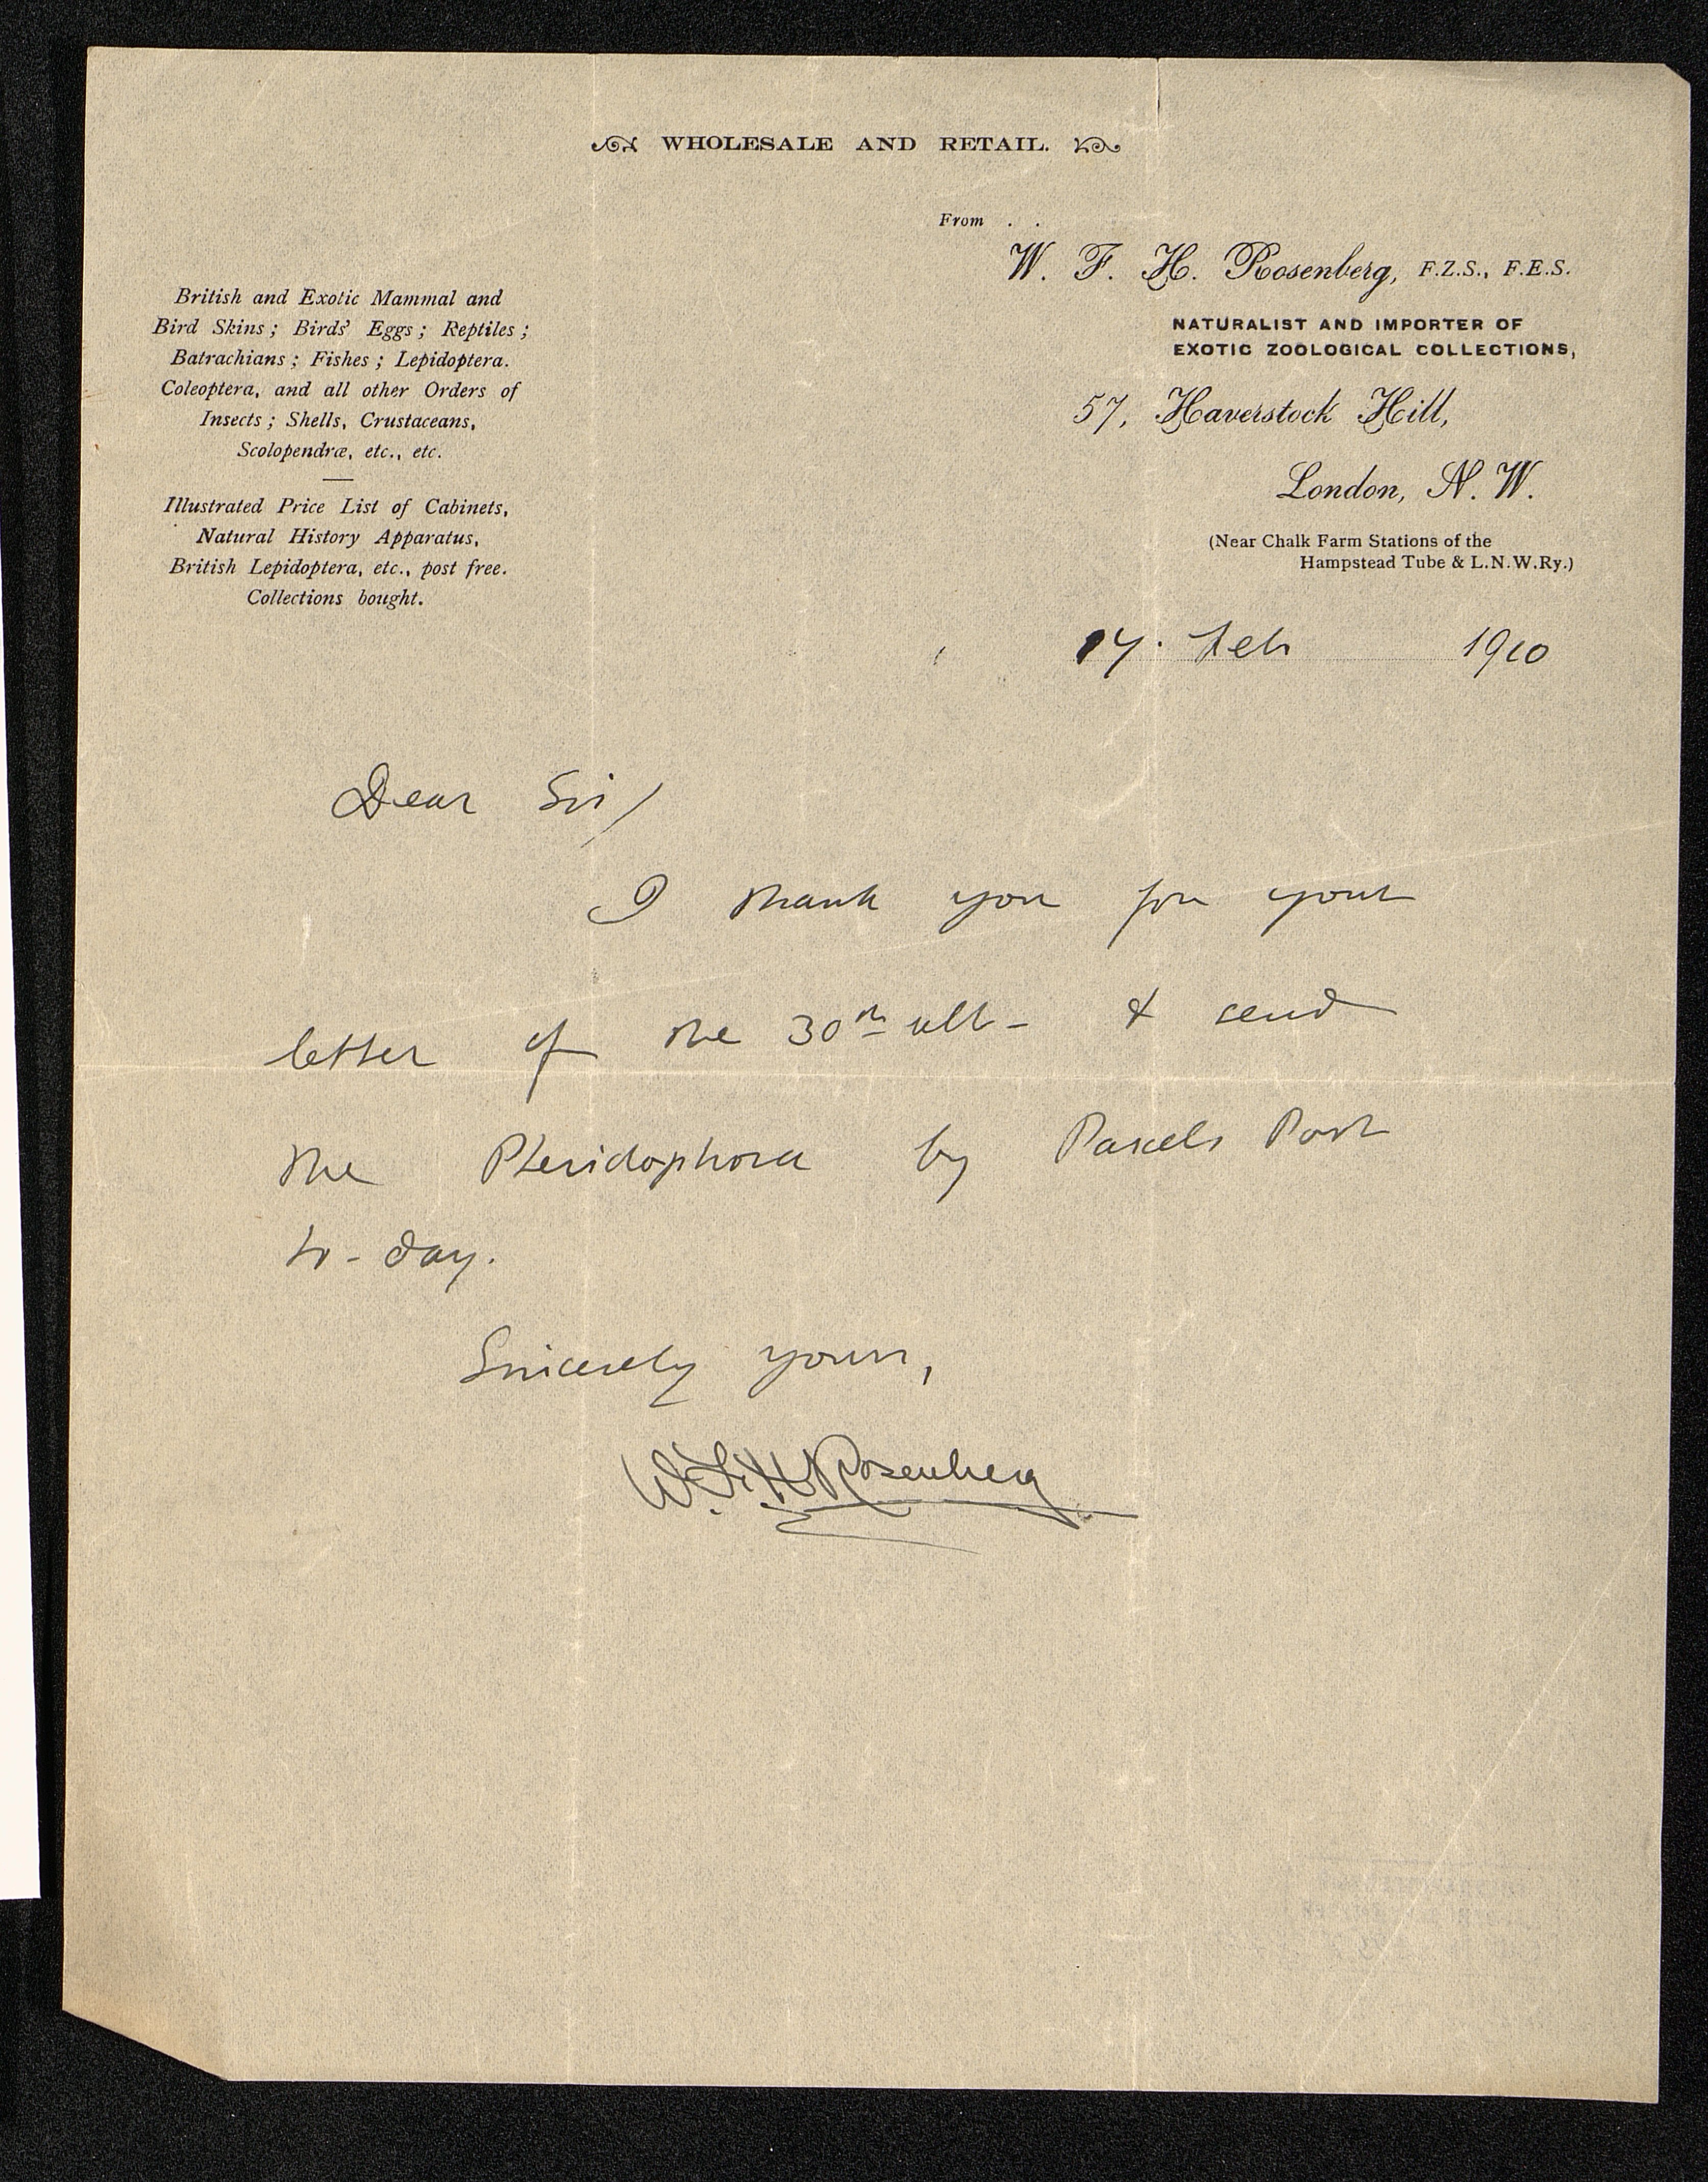 WHOLESALE AND RETAIL.
From . .
W. F. H. Rosenberg, F.Z.S., F.E.S.
NATURALIST AND IMPORTER OF
EXOTIC ZOOLOGICAL COLLECTIONS,
57, Haverstock Hill,
London, N. W.
(Near Chalk Farm Stations of the
Hampstead Tube & L.N.W.Ry.)
British and Exotic Mammal and
Bird Skins ; Birds' Eggs ; Reptiles ;
Batrachians ; Fishes ; Lepidoptera.
Coleoptera, and all other Orders of
Insects ; Shells, Crustaceans,
Scolopendræ, etc., etc.
Illustrated Price List of Cabinets,
Natural History Apparatus,
British Lepidoptera, etc., post free.
Collections bought.
14. Feb 1910
Dear Sir/
I thank you for your
letter of the 30th ult- & send
the Pteridophora by Parcels Post
to-day.
Sincerely yours,
W.F.H Rosenberg